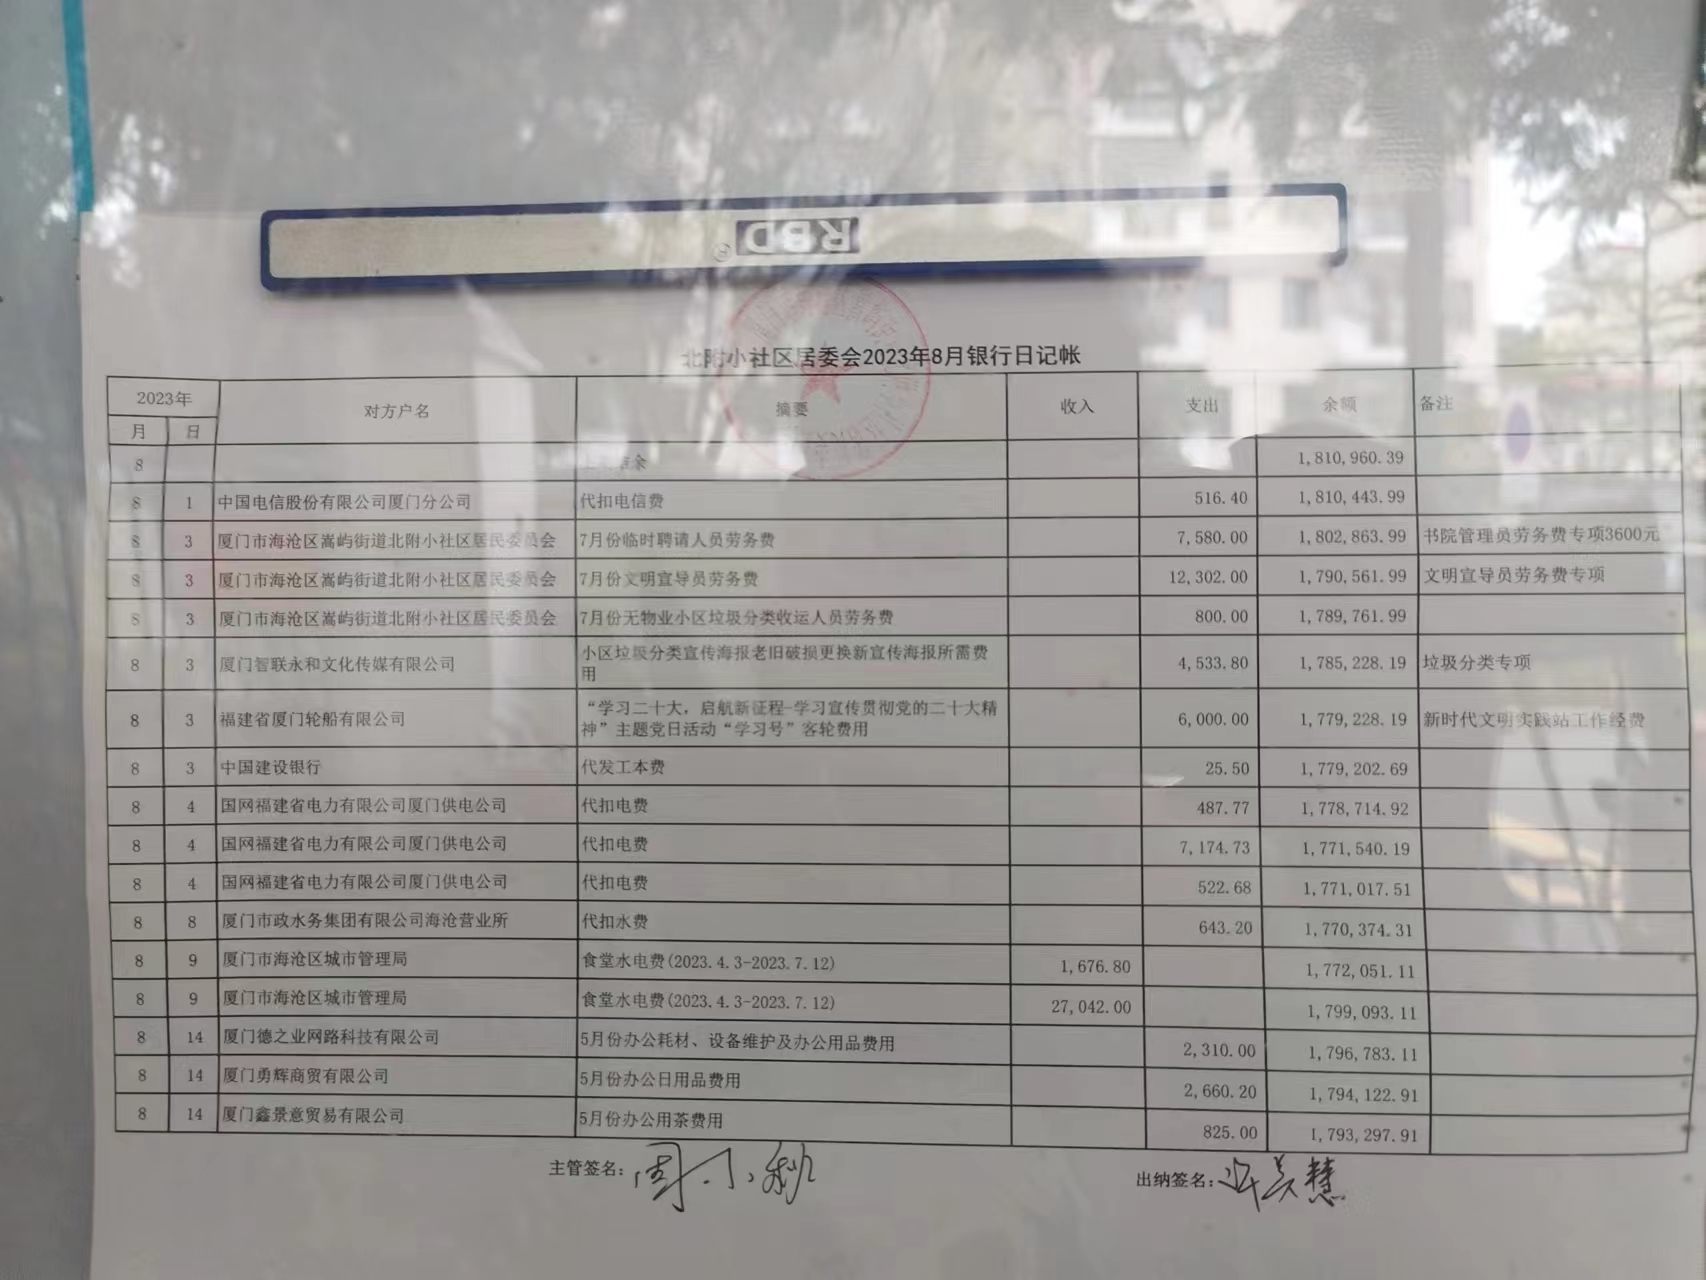 RBD
北附小社区居委会2023年8月银行日记帐
2023年 对方户名 摘要 收入 支出 余额 备注
月 日
8 余 1,810,960.39
8 1 中国电信股份有限公司厦门分公司 代扣电信费 516.40 1,810,443.99
8 3 厦门市海沧区嵩屿街道北附小社区居民委员会 7月份临时聘请人员劳务费 7,580.00 1,802,863.99 书院管理员劳务费专项3600元
8 3 厦门市海沧区嵩屿街道北附小社区居民委员会 7月份文明宣导员劳务费 12,302.00 1,790,561.99 文明宣导员劳务费专项
8 3 厦门市海沧区嵩屿街道北附小社区居民委员会 7月份无物业小区垃圾分类收运人员劳务费 800.00 1,789,761.99
8 3 厦门智联永和文化传媒有限公司 小区垃圾分类宣传海报老旧破损更换新宣传海报所需费 4,533.80 1,785,228.19 垃圾分类专项
用
8 3 福建省厦门轮船有限公司 “学习二十大，启航新征程-学习宣传贯彻党的二十大精 6,000.00 1,779,228.19 新时代文明实践站工作经费
神”主题党日活动“学习号”客轮费用
8 3 中国建设银行 代发工本费 25.50 1,779,202.69
8 4 国网福建省电力有限公司厦门供电公司 代扣电费 487.77 1,778,714.92
8 4 国网福建省电力有限公司厦门供电公司 代扣电费 7,174.73 1,771,540.19
8 4 国网福建省电力有限公司厦门供电公司 代扣电费 522.68 1,771,017.51
8 8 厦门市政水务集团有限公司海沧营业所 代扣水费 643.20 1,770,374.31
8 9 厦门市海沧区城市管理局 食堂水电费(2023.4.3-2023.7.12) 1,676.80 1,772,051.11
8 9 厦门市海沧区城市管理局 食堂水电费(2023.4.3-2023.7.12) 27,042.00 1,799,093.11
8 14 厦门德之业网路科技有限公司 5月份办公耗材、设备维护及办公用品费用 2,310.00 1,796,783.11
8 14 厦门勇辉商贸有限公司 5月份办公日用品费用 2,660.20 1,794,122.91
8 14 厦门鑫景意贸易有限公司 5月份办公用茶费用 825.00 1,793,297.91
主管签名：周小秋 出纳签名：